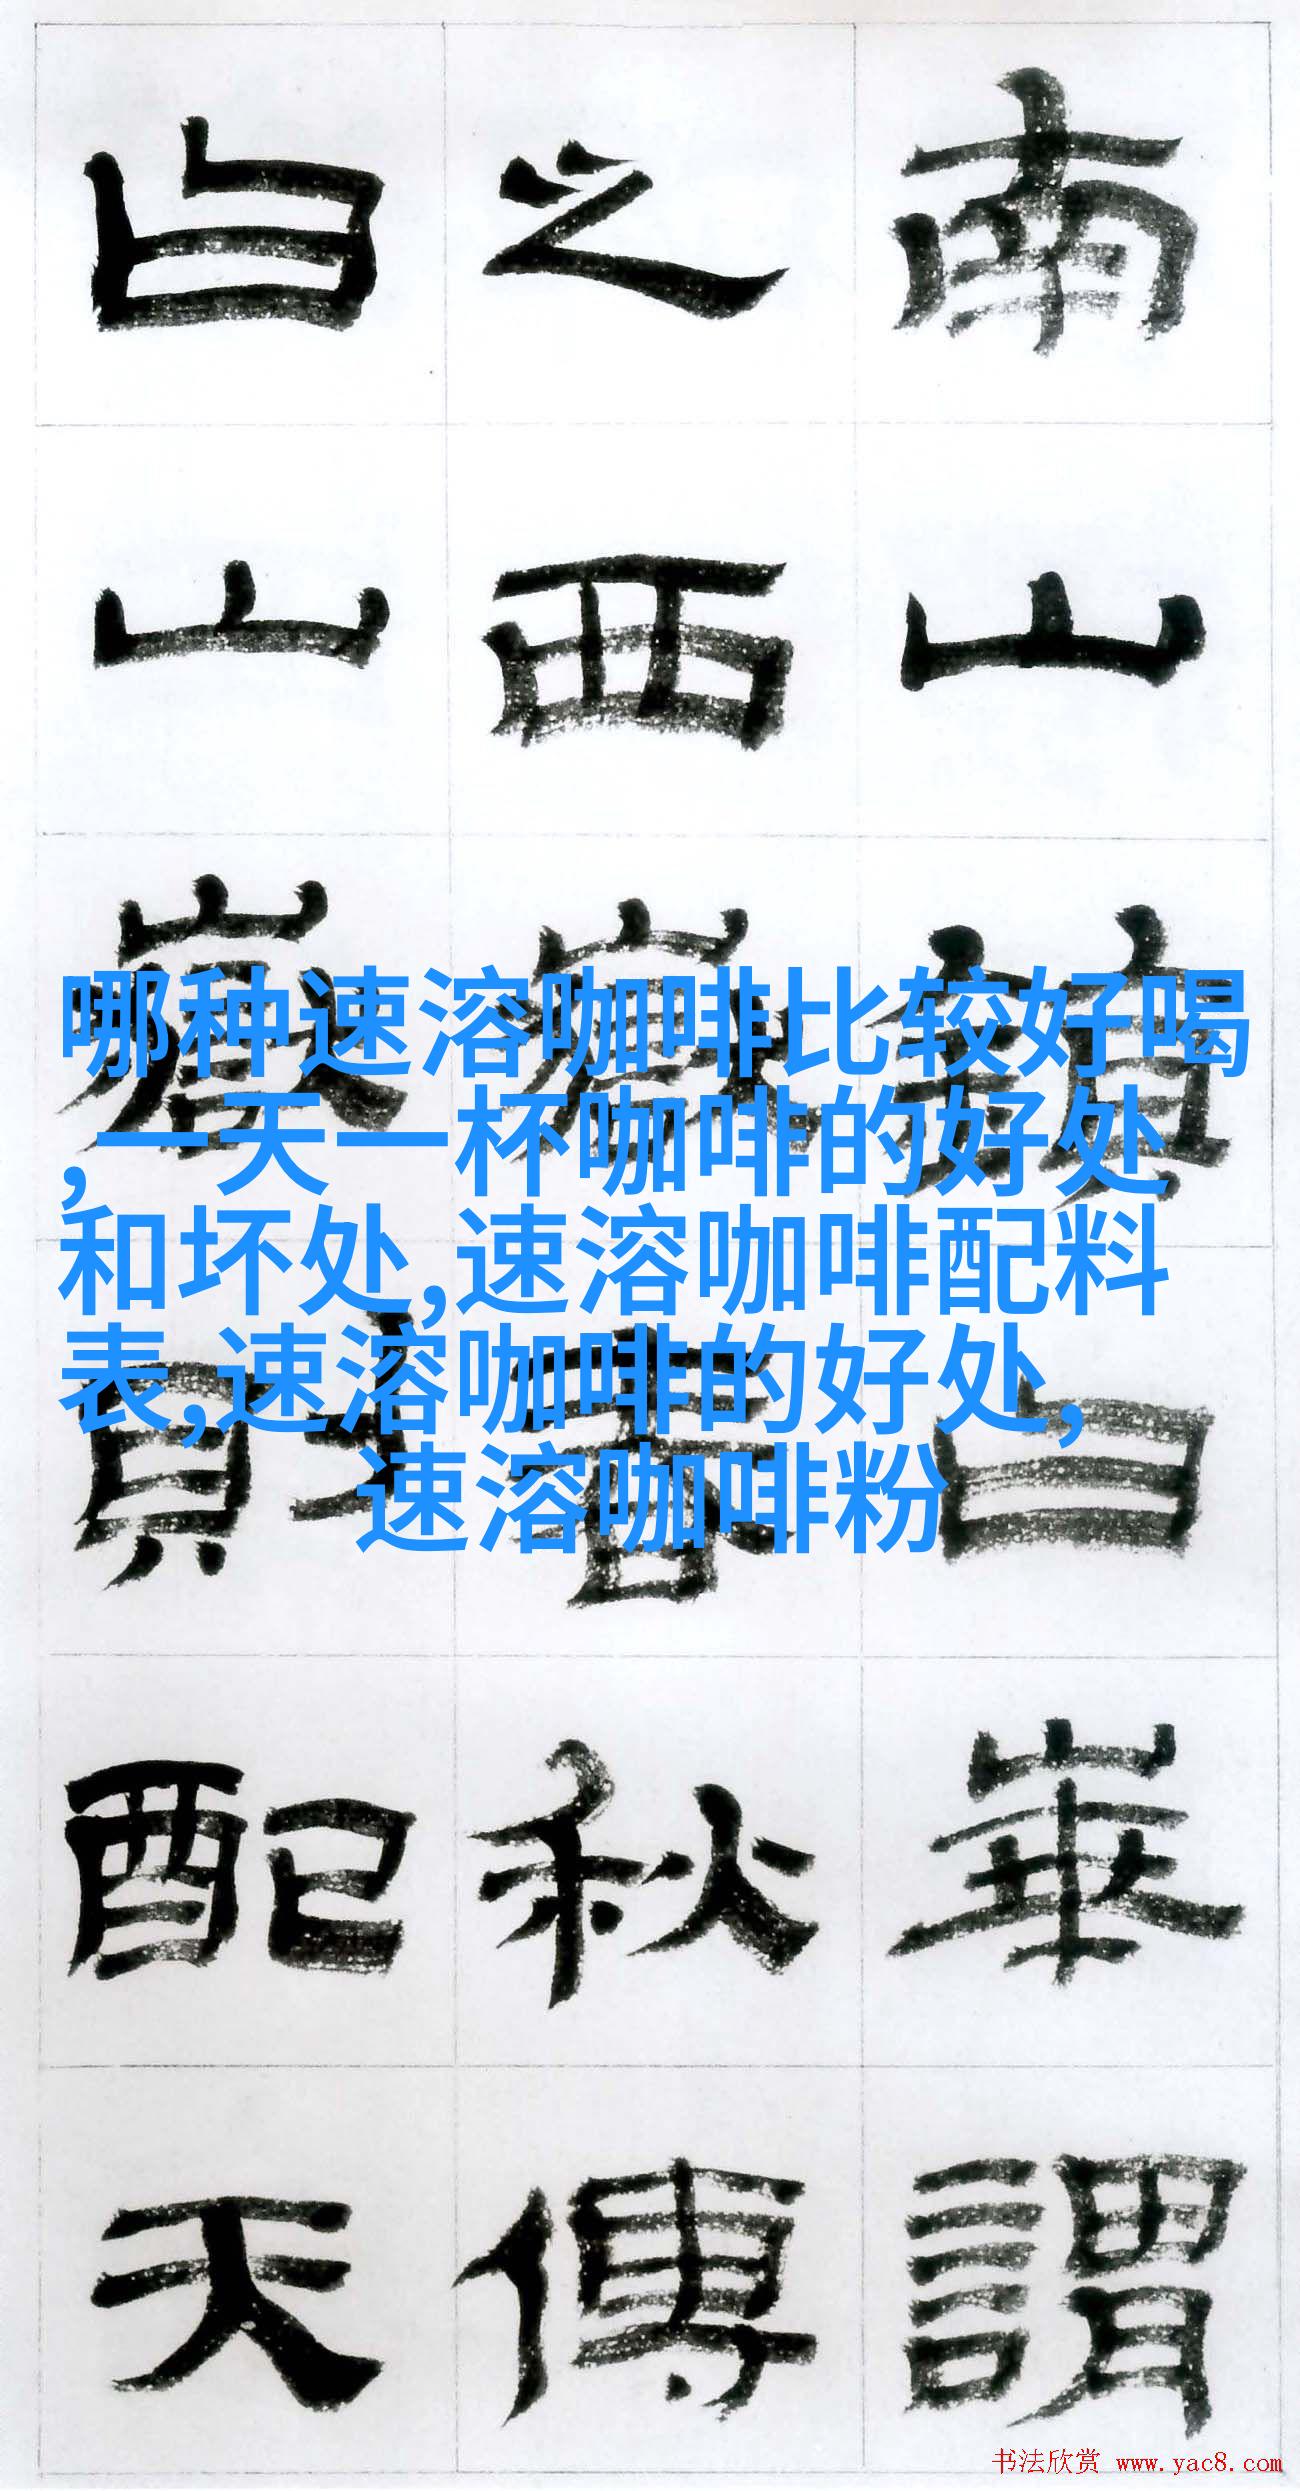 南山鎮曰華謂
之西嶽春秋傳
曰山嶽則配天
哪种速溶咖啡比较好喝
,一天一杯咖啡的好处
和坏处,速溶咖啡配料
表,速溶咖啡的好处,
速溶咖啡粉
书法欣赏 www.yac8.com